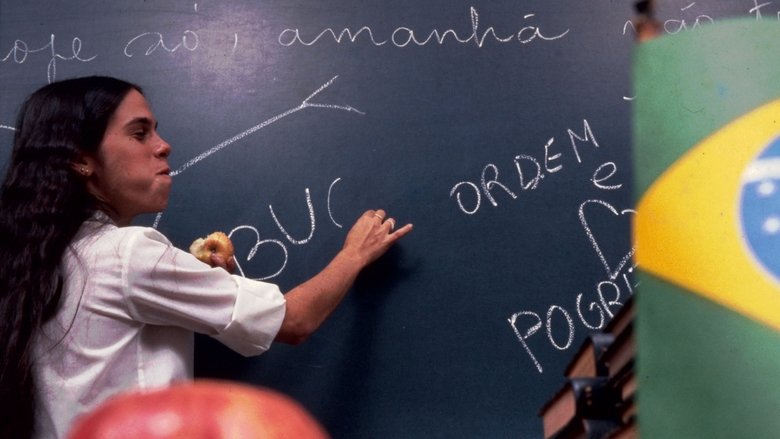 hoje aó, amanhã não
BUC
ORDEM
e
POGRE